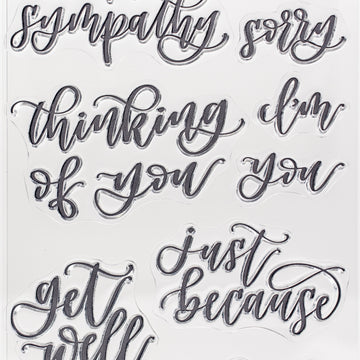 sympathy sorry
thinking I'm
of you you
just
because
get
well